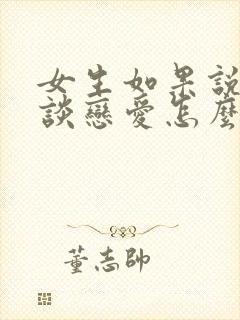 女生如果說
談戀愛怎麼
董志帥